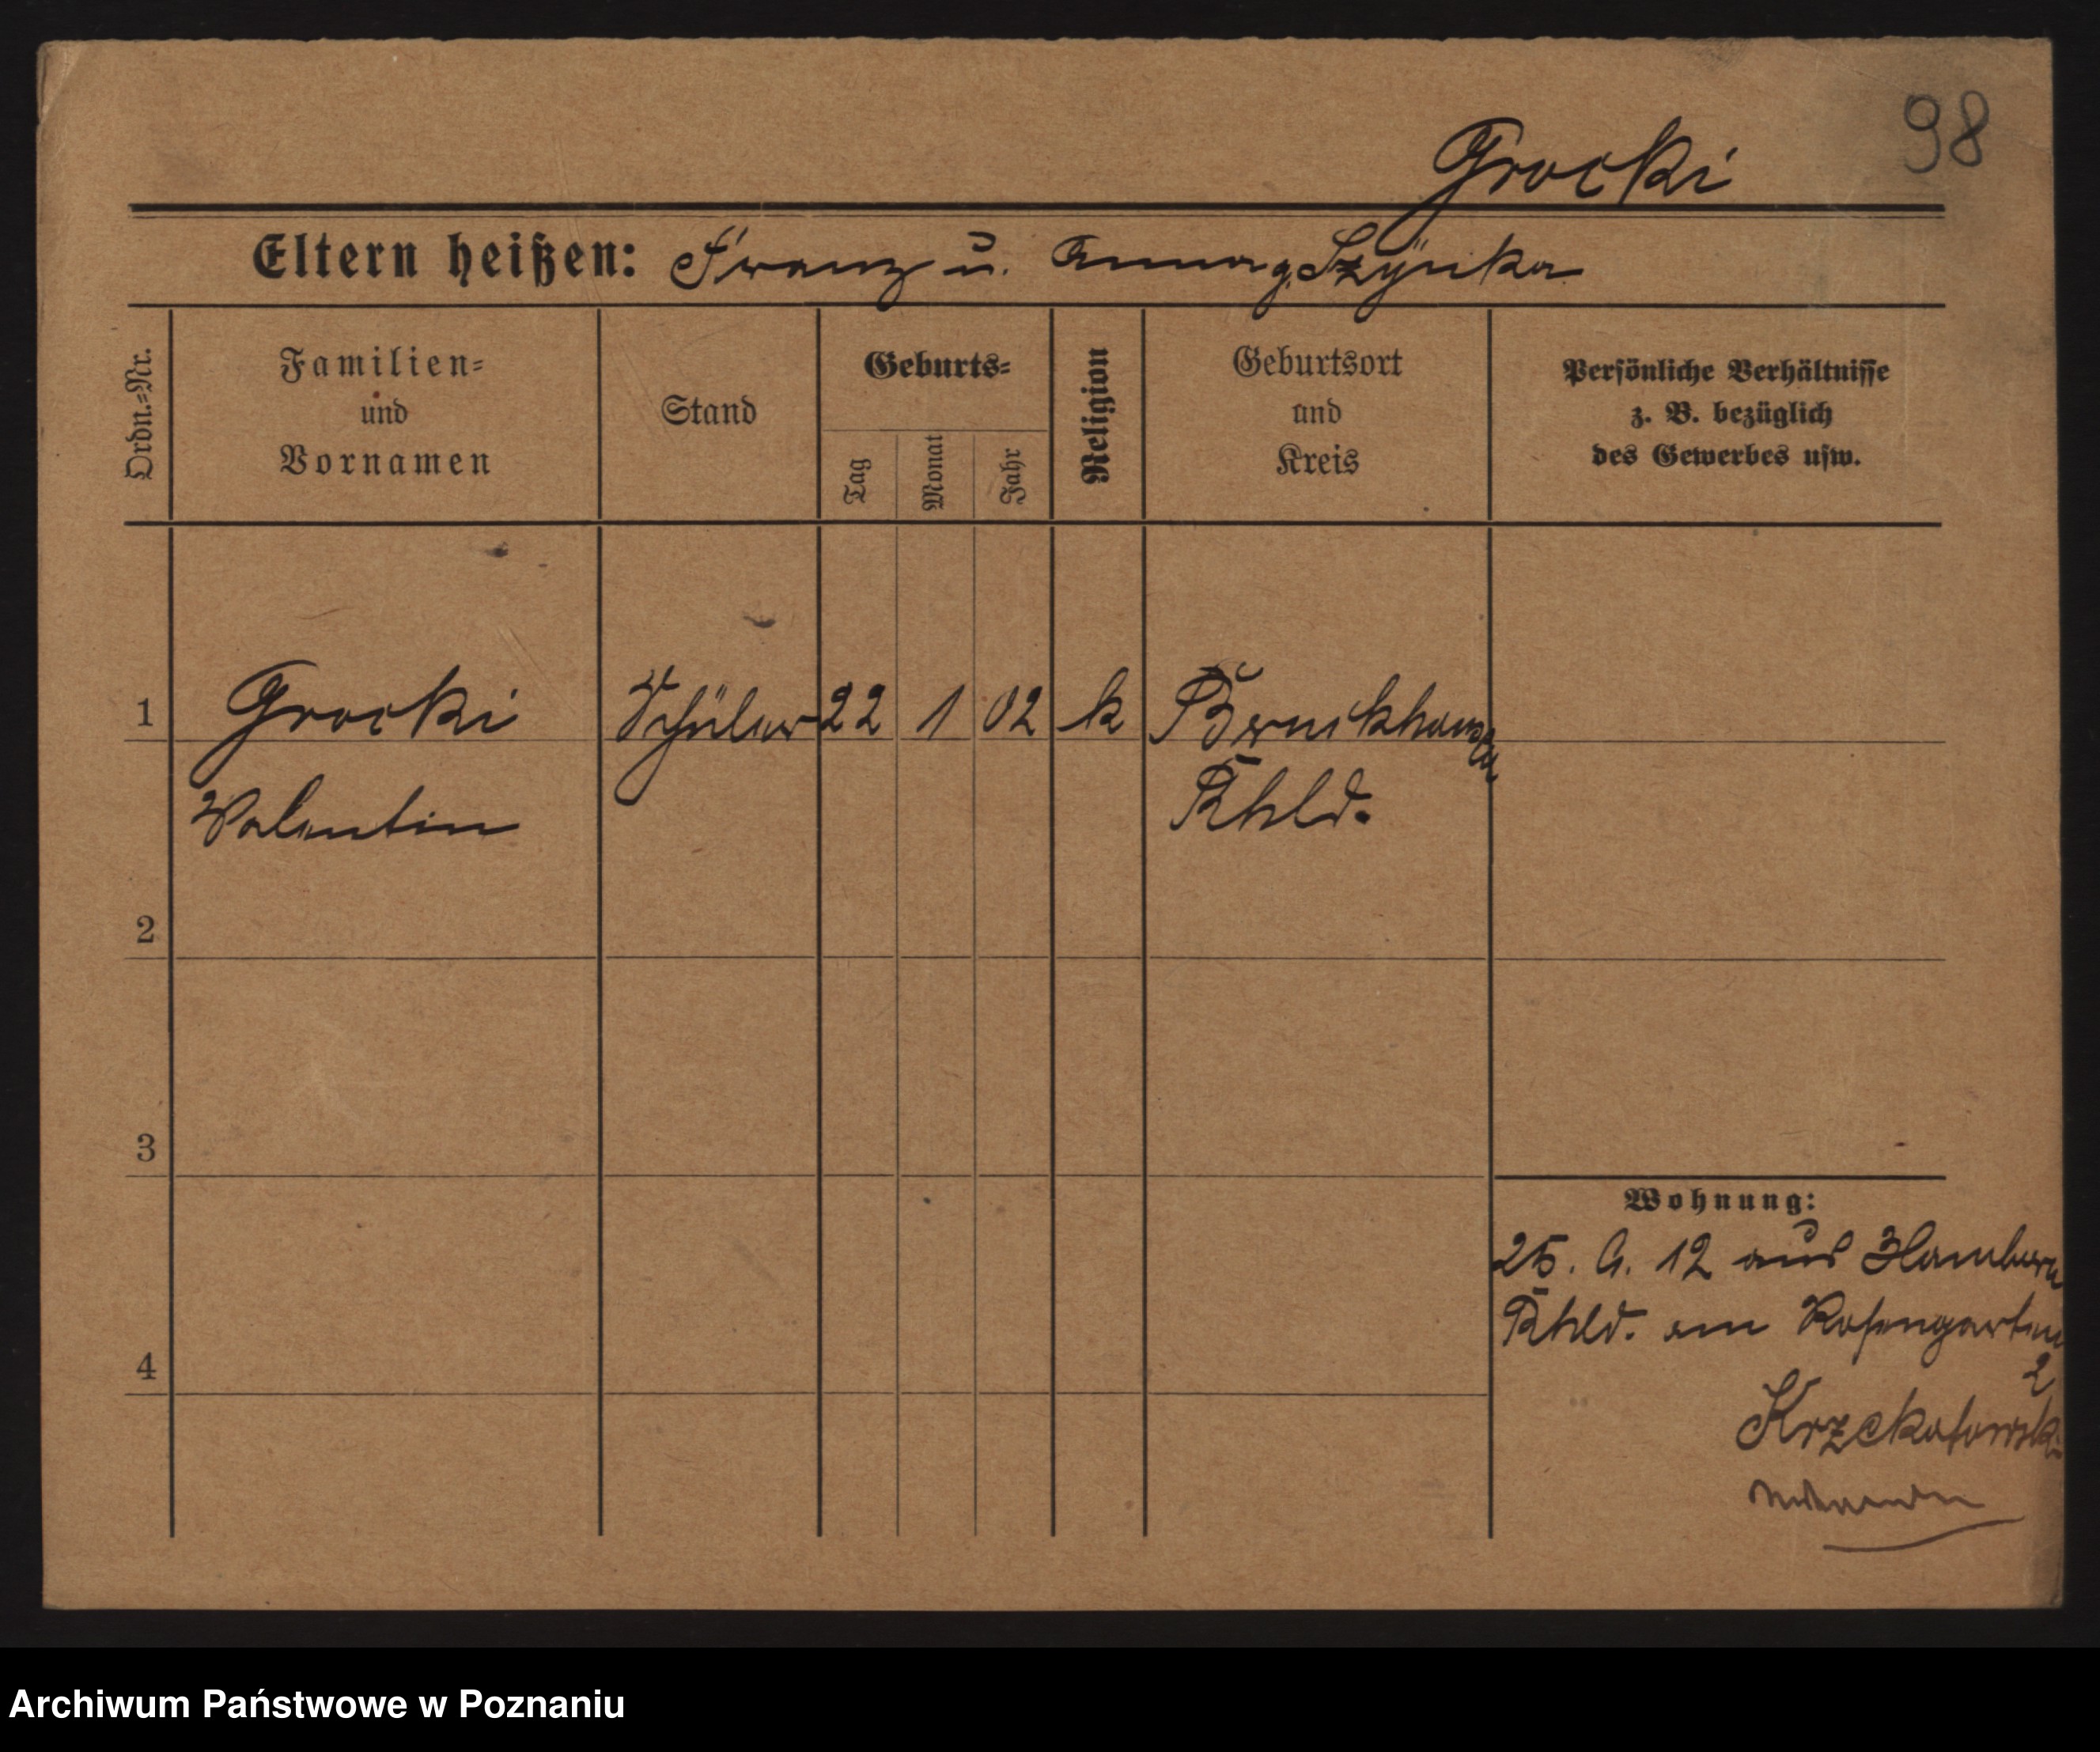 98
Grocki
Eltern heißen: Franz u. Anna g. Szÿnka
Ordn.=Nr.
Familien=
und
Vornamen
Stand
Geburts=
Tag
Monat
Jahr
Religion
Geburtsort
und
Kreis
Persönliche Verhältnisse
z. B. bezüglich
des Gewerbes usw.
1 Grocki Schüler 22 1 02 k Bruckhausen
Valentin Rhld.
2
3
Wohnung:
25. 6. 12 aus Hamborn
Rhld. am Rosengarten
2
4
Krzekotowski
Archiwum Państwowe w Poznaniu